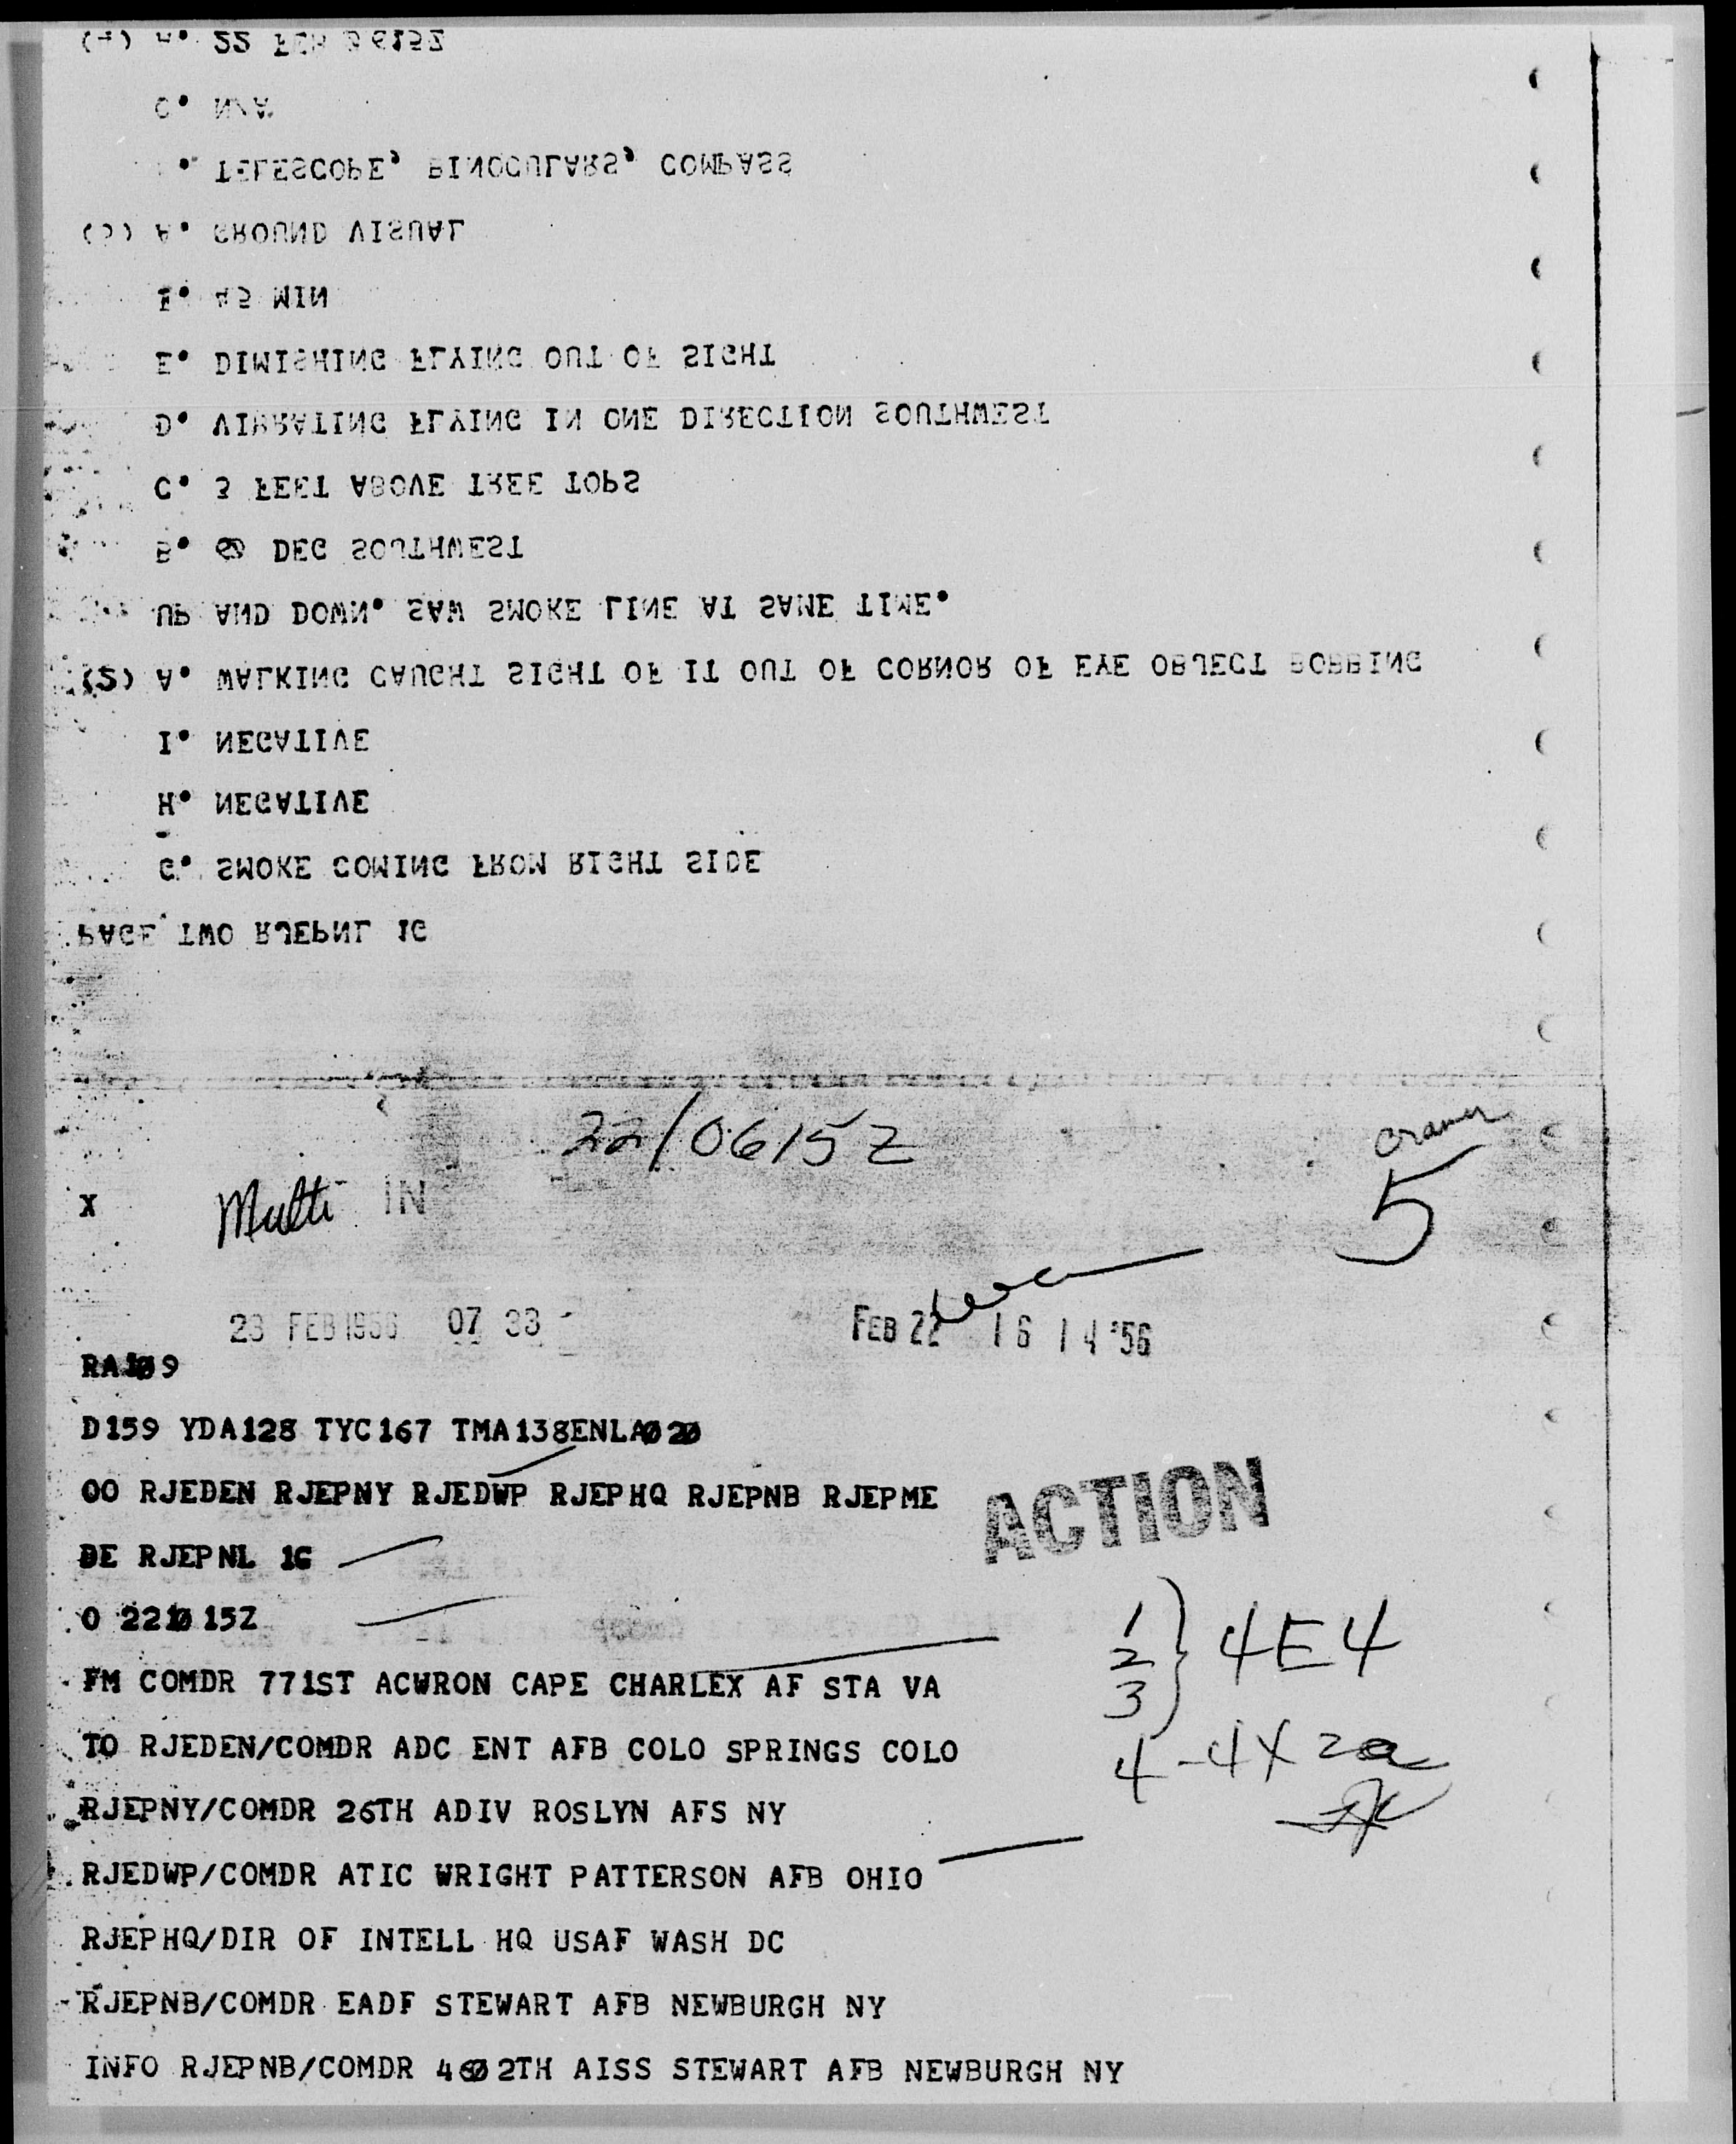 22/0615Z
Cramer
X
Multi IN
5
23 FEB 1956 07 33
FEB 22 16 14 '56
RA109
D159 YDA128 TYC167 TMA138ENLA020
OO RJEDEN RJEPNY RJEDWP RJEPHQ RJEPNB RJEPME
ACTION
DE RJEPNL 1G
O 221015Z
1
2 } 4E4
3
FM COMDR 771ST ACWRON CAPE CHARLEX AF STA VA
TO RJEDEN/COMDR ADC ENT AFB COLO SPRINGS COLO
4-4X2a
RJEPNY/COMDR 26TH ADIV ROSLYN AFS NY
RJEDWP/COMDR ATIC WRIGHT PATTERSON AFB OHIO
RJEPHQ/DIR OF INTELL HQ USAF WASH DC
RJEPNB/COMDR EADF STEWART AFB NEWBURGH NY
INFO RJEPNB/COMDR 4602TH AISS STEWART AFB NEWBURGH NY
PAGE TWO RJEPNL 1G
G. SMOKE COMING FROM RIGHT SIDE
H. NEGATIVE
I. NEGATIVE
(2) A. WALKING CAUGHT SIGHT OF IT OUT OF CORNOR OF EYE OBJECT BOBBING
UP AND DOWN. SAW SMOKE LINE AT SAME TIME.
B. DEG SOUTHWEST
C. 3 FEET ABOVE TREE TOPS
D. VIBRATING FLYING IN ONE DIRECTION SOUTHWEST
E. DIMISHING FLYING OUT OF SIGHT
F. 45 MIN
(3) A. GROUND VISUAL
. TELESCOPE, BINOCULARS, COMPASS
C. N/A
(4) A. 22 FEB 0615Z